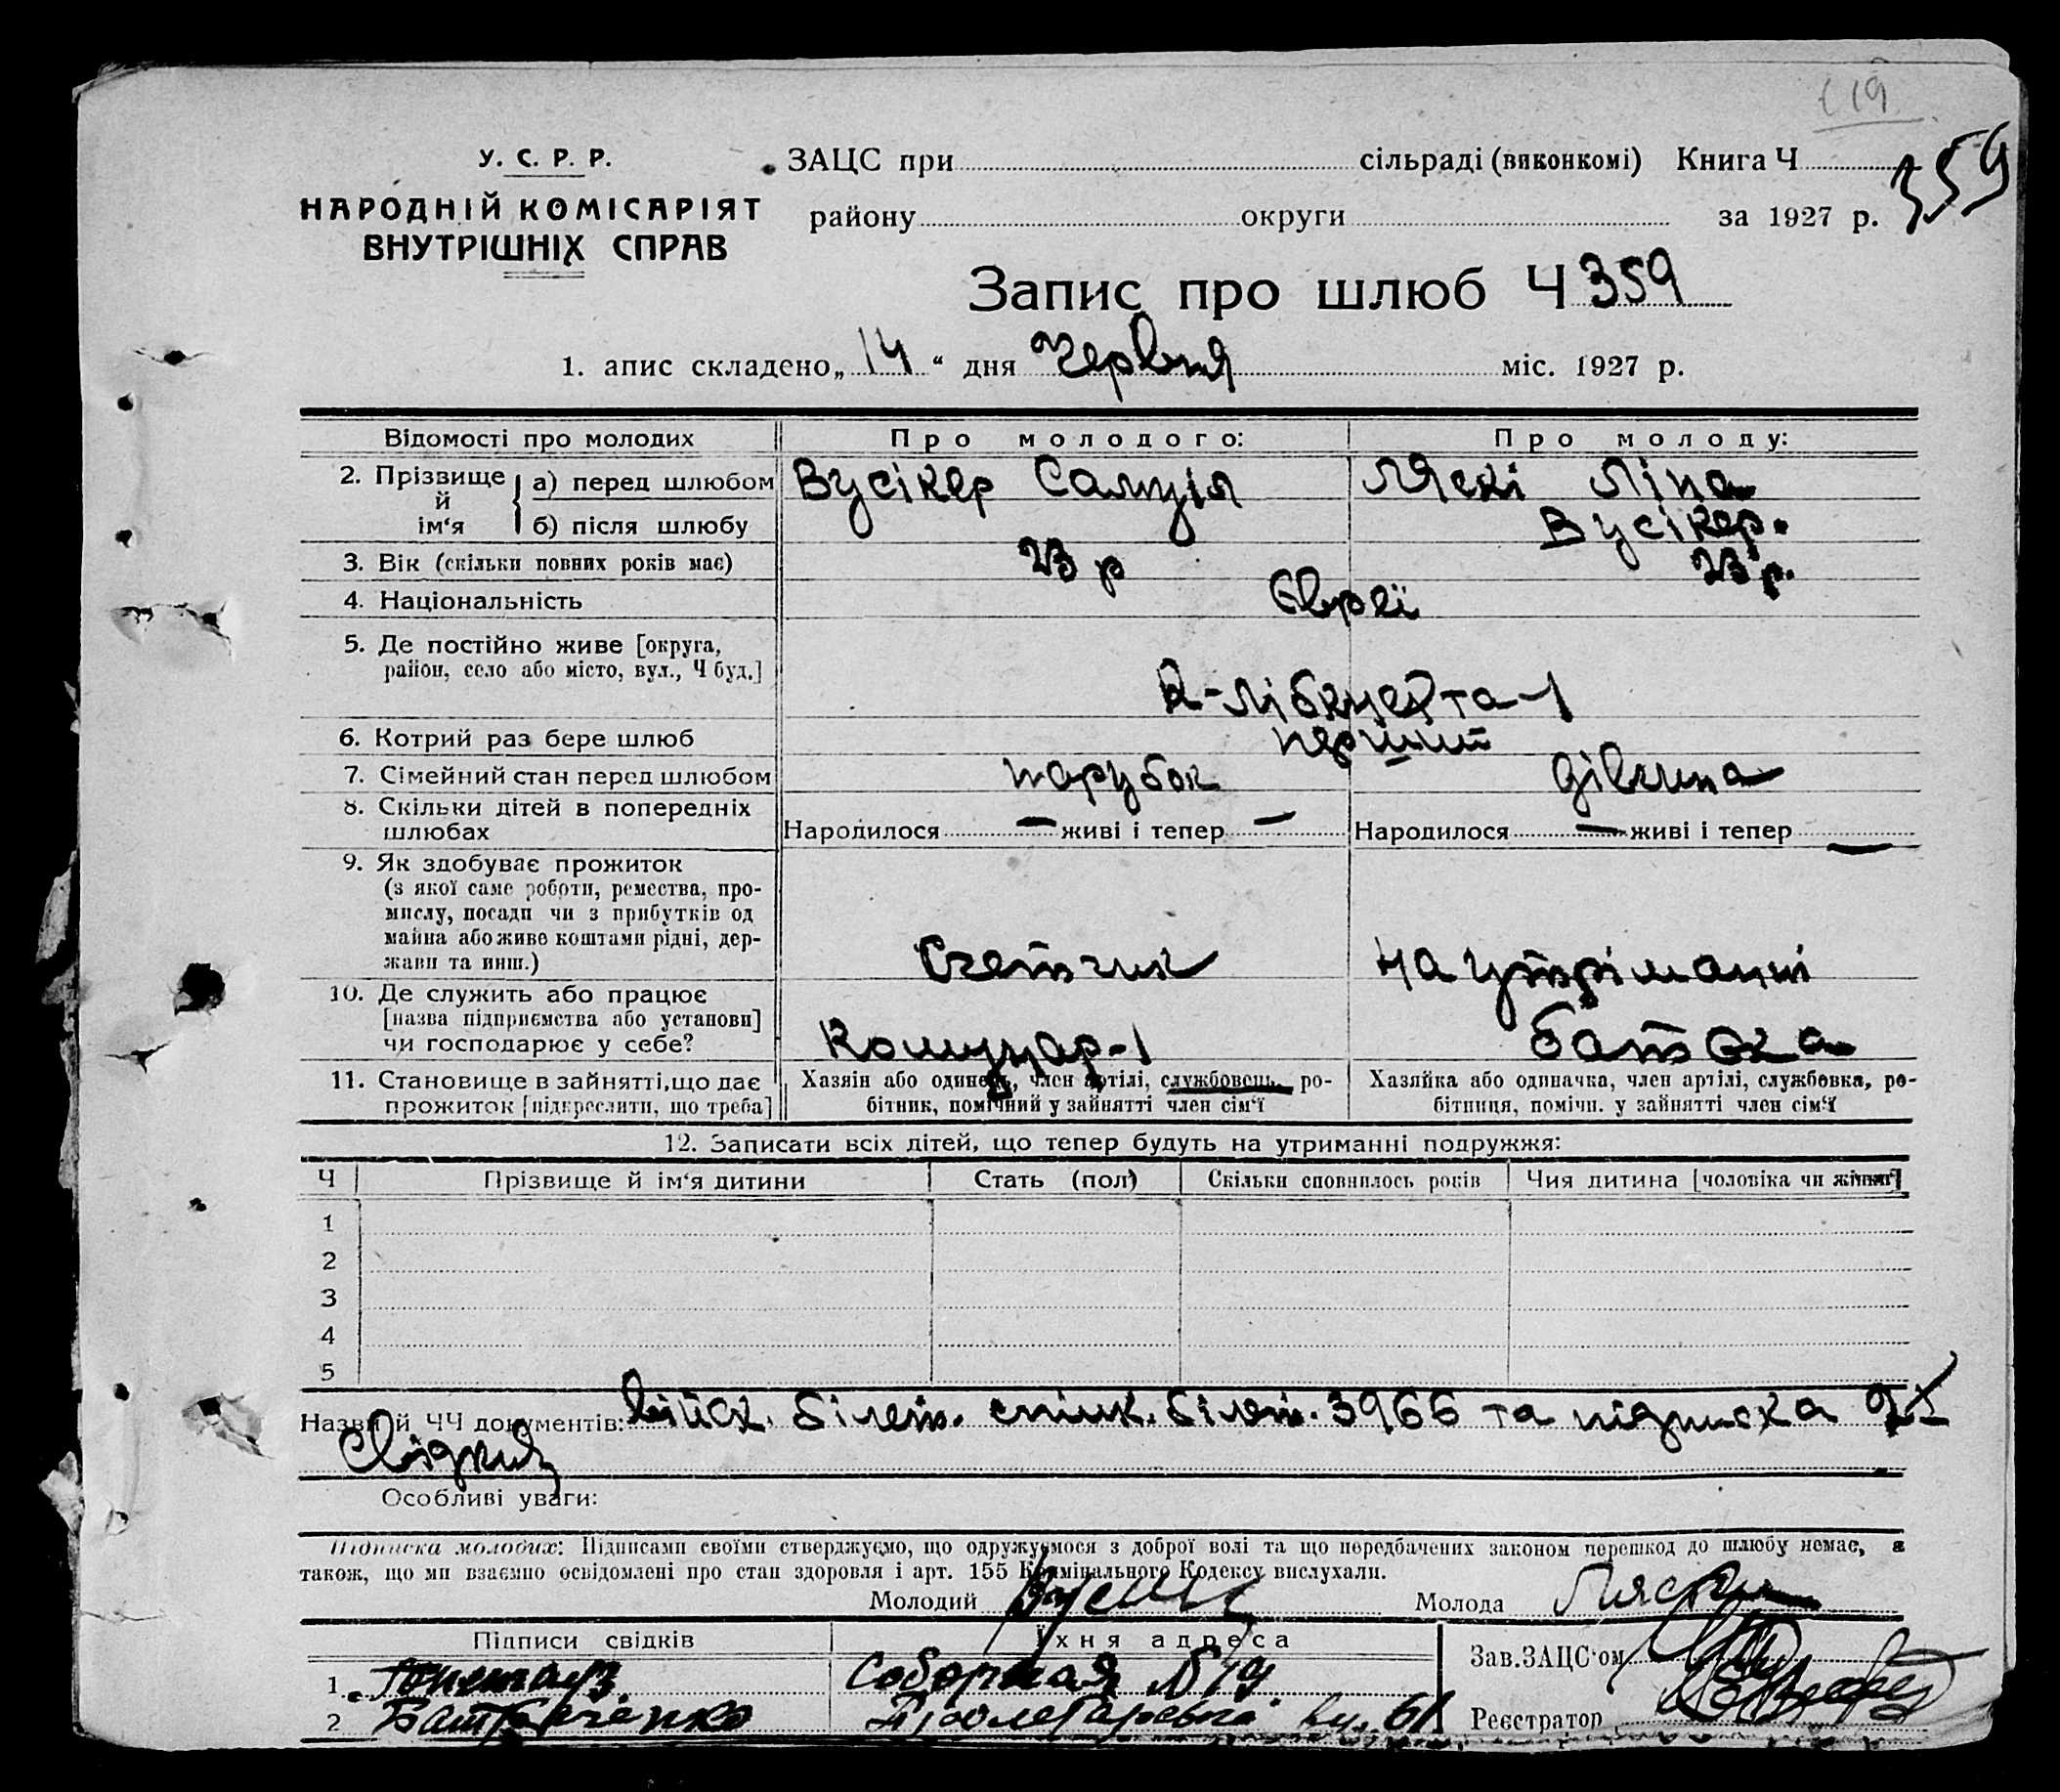 119
У. С. Р. Р.
НАРОДНІЙ КОМІСАРІЯТ
ВНУТРІШНІХ СПРАВ
ЗАЦС при сільраді (виконкомі) Книга Ч 359
району округи за 1927 р.
Запис про шлюб Ч 359
1. апис складено „ 14 “ дня Червня міс. 1927 р.
Відомості про молодих Про молодого: Про молоду:
2. Прізвище й ім‘я { а) перед шлюбом Вусікер Самуіл Ляскі Ліна
б) після шлюбу Вусікер.
3. Вік (скільки повних років має) 23 р 23 р.
4. Національність Євреї
5. Де постійно живе [округа,
район, село або місто, вул., Ч буд.] К-Лібкнехта-1
6. Котрий раз бере шлюб перший
7. Сімейний стан перед шлюбом парубок дівчина
8. Скільки дітей в попередніх
шлюбах Народилося — живі і тепер — Народилося — живі і тепер —
9. Як здобуває прожиток
(з якої саме роботи, ремества, про-
мислу, посади чи з прибутків од
майна або живе коштами рідні, дер-
жави та инш.) Счетчик на утріманні
10. Де служить або працює
[назва підприємства або установи]
чи господарює у себе? Комунар-1 батька
11. Становище в зайнятті, що дає Хазяін або одинець, член артілі, службовець, ро- Хазяйка або одиначка, член артілі, службовка, ро-
прожиток [підкреслити, що треба] бітник, помічний у зайнятті член сім‘ї бітниця, помічн. у зайнятті член сім‘ї
12. Записати всіх дітей, що тепер будуть на утриманні подружжя:
Ч Прізвище й ім‘я дитини Стать (пол) Скільки сповнилось років Чия дитина [чоловіка чи жінки]
1
2
3
4
5
Назви й ЧЧ документів: військ. білет. спілк. білет. 3966 та підписка 2х
свідків
Особливі уваги:
Підписка молодих: Підписами своїми стверджуємо, що одружуємося з доброї волі та що передбачених законом перешкод до шлюбу немає, а
також, що ми взаємно освідомлені про стан здоровля і арт. 155 Кримінального Кодексу вислухали.
Молодий Молода Ляски
Підписи свідків Їхня адреса Зав. ЗАЦС‘ом
1. Соборная № 19
2 Пролетарська вул. 61 Реєстратор